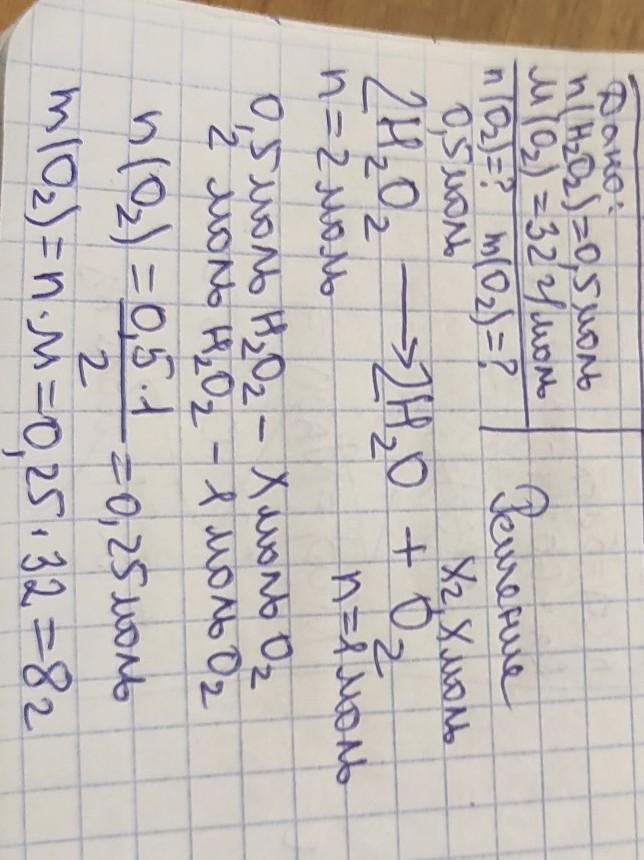 Дано:
n(H₂O₂)=0,5моль
M(O₂)=32г/моль
n(O₂)=? m(O₂)=?
Решение
0,5моль хг, хмоль
2H₂O₂ → 2H₂O + O₂
n=2моль n=1моль
0,5моль H₂O₂ – х моль O₂
2 моль H₂O₂ – 1 моль O₂
n(O₂) = 0,5·1/2 = 0,25моль
m(O₂)=n·M=0,25·32=8г